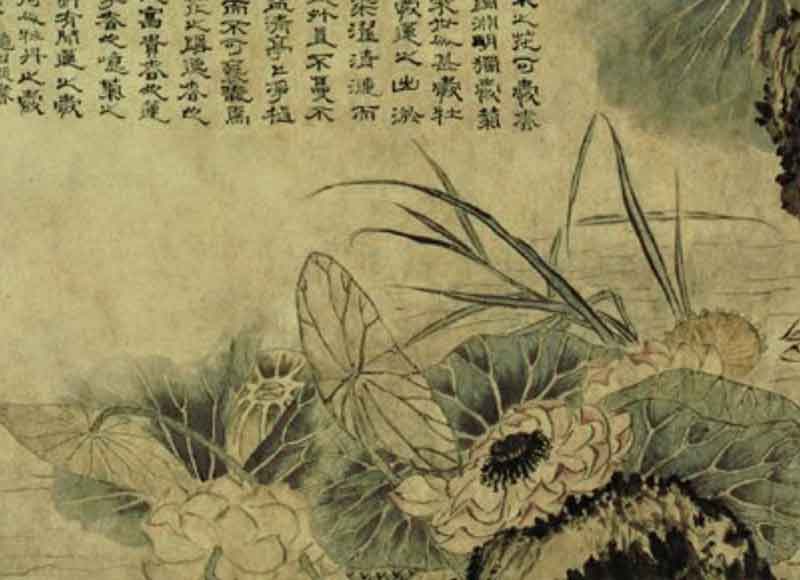 木之花可愛者
陶淵明獨愛菊
來世人甚愛牡
愛蓮之出淤
染濯清漣而
外直不蔓不
益清亭亭淨植
而不可褻翫焉
花之隱逸者也
富貴者也蓮
子者也噫菊之
鮮有聞蓮之愛
何人牡丹之愛